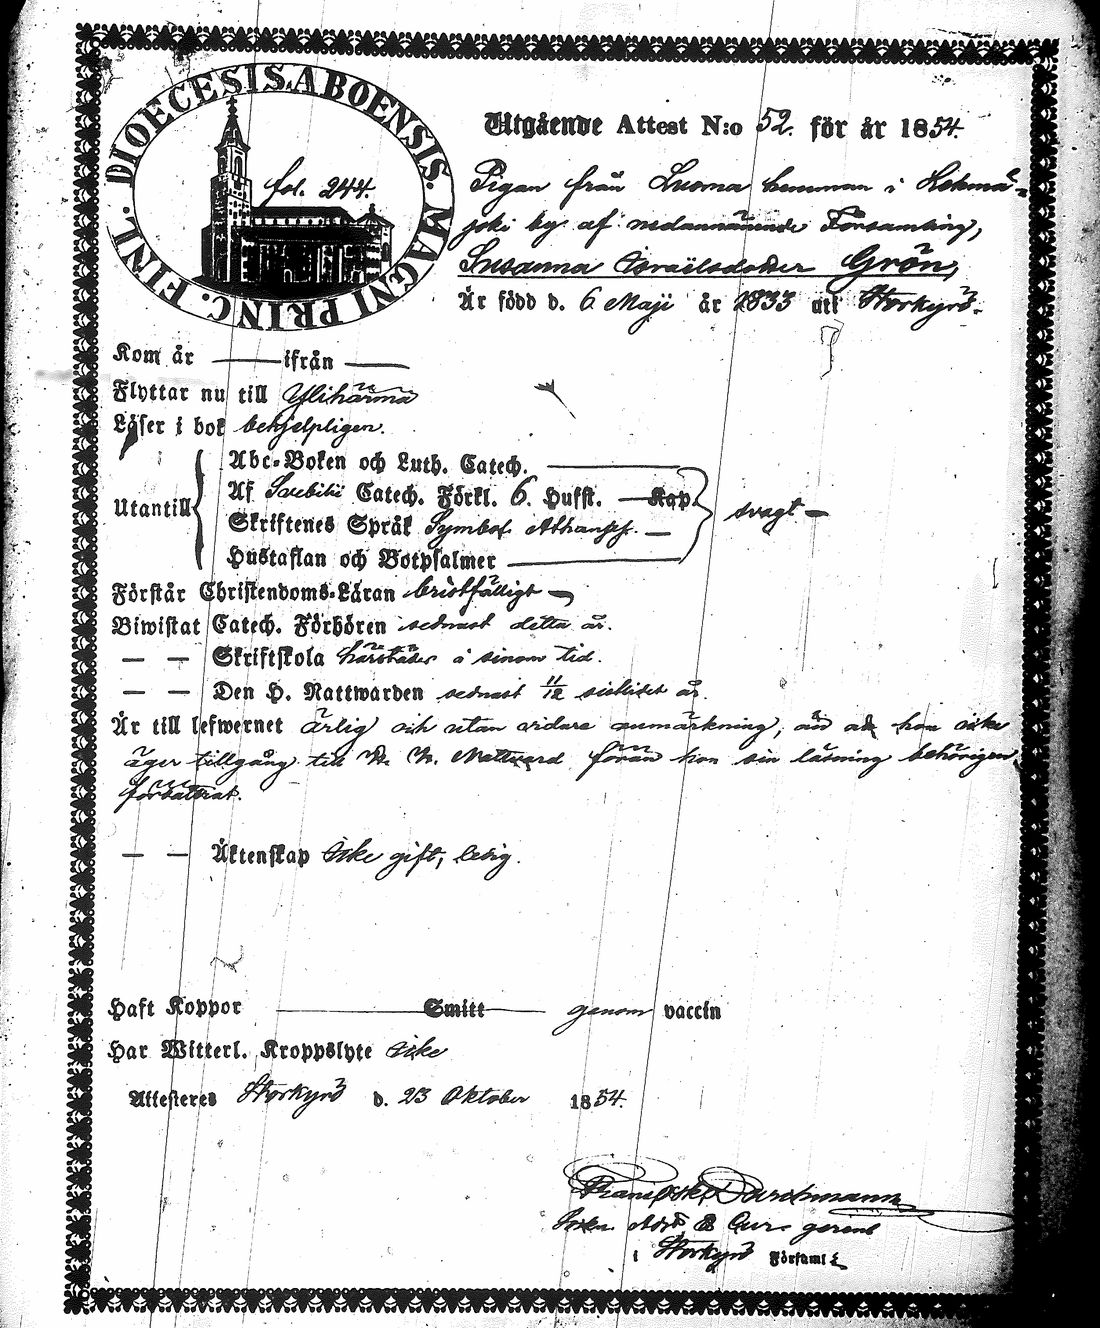 DIOECESIS ABOENSIS. MAGNI PRINC. FINL.
fol. 244.
Utgående Attest N:o 52. för år 1854.
Pigan från Luoma hemman i Lehmä-
joki by af nedannämnde Församling,
Susanna Israëlsdotter Grön,
Är född d. 6 Maji år 1833 uti Storkyrö.
Kom år —— ifrån ——
Flyttar nu till Ylihärmä
Läser i bok behjelpligen.
Utantill
Abc-Boken och Luth. Catech. ——
Af Svebilii Catech. Förkl. 6. Hufst. — Kap.
svagt —
Skriftenes Språk Symbol. Athanas. —
Hustaflan och Botpsalmer ——
Förstår Christendoms-Läran bristfälligt —
Biwistat Catech. Förhören sednast detta år.
— — Skriftskola härstädes i sinom tid.
— — Den H. Nattwarden sednast 11/12 sistlidet år.
Är till lefwernet ärlig och utan vidare anmärkning, än at hon icke
äger tillgång till H. H. Nattvard förän hon sin läsning behörigen
förbättrat.
— — Äktenskap Icke gift, ledig.
Haft Koppor —— Smitt —— genom vaccin
Har Witterl. Kroppslyte icke
Attesteres Storkyrö d. 23 Oktober 1854.
gerens
i Storkyrö Församl.